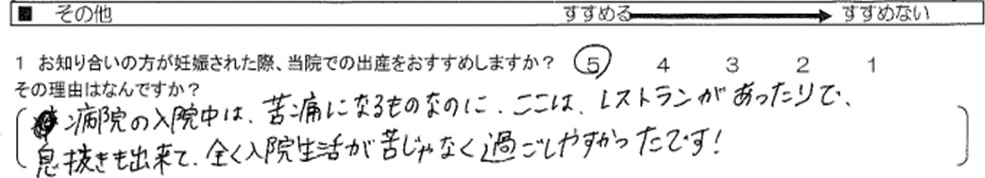 ■ その他 すすめる すすめない
1 お知り合いの方が妊娠された際、当院での出産をおすすめしますか? 5 4 3 2 1
その理由はなんですか?
病院の入院中は、苦痛になるものなのに、ここは、レストランがあったりで、
息抜きも出来て、全く入院生活が苦じゃなく過ごしやすかったです!